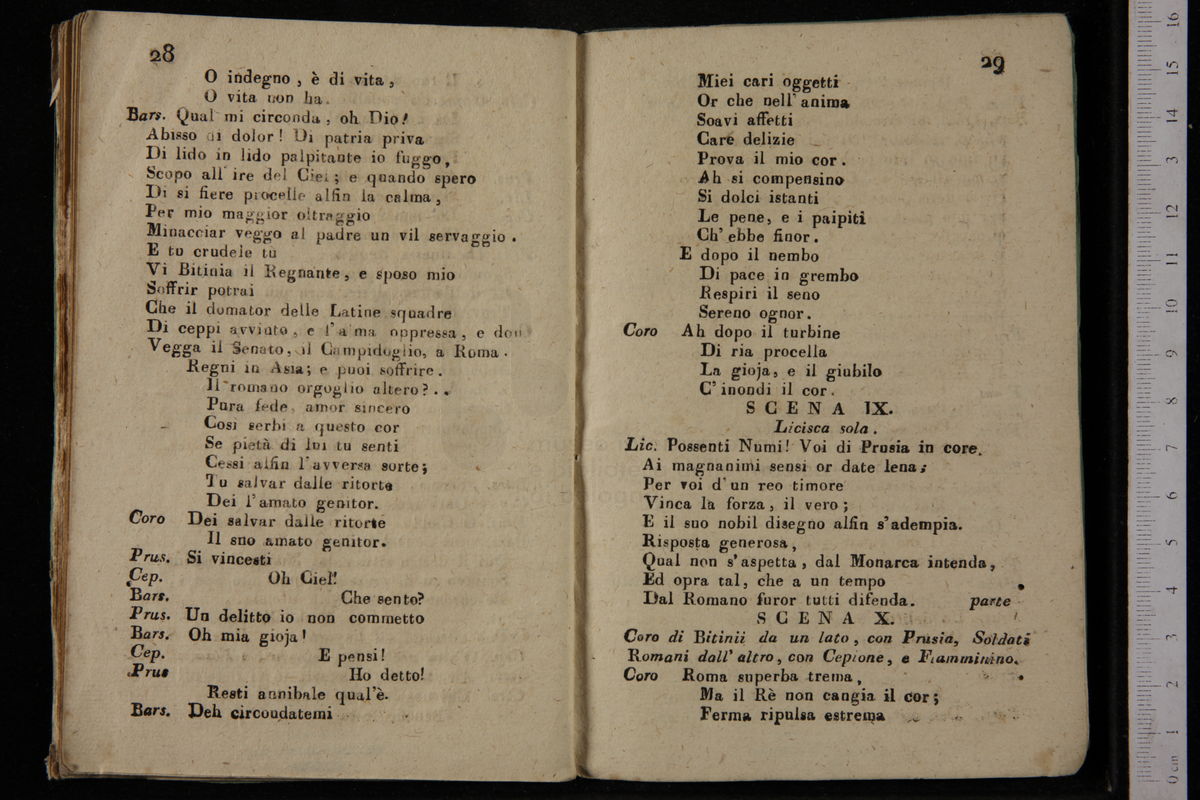 28
O indegno, è di vita,
O vita non ha.
Bars. Qual mi circonda, oh Dio!
Abisso di dolor! Di patria priva
Di lido in lido palpitante io fuggo,
Scopo all' ire del Ciel; e quando spero
Di si fiere procelle alfin la calma,
Per mio maggior oltraggio
Minacciar veggo al padre un vil servaggio.
E tu crudele tù
Vi Bitinia il Regnante, e sposo mio
Soffrir potrai
Che il domator delle Latine squadre
Di ceppi avvinto, e l'alma oppressa, e
Vegga il Senato, il Campidoglio, a Roma.
Regni in Asia; e puoi soffrire.
Il romano orgoglio altero?..
Pura fede, amor sincero
Così serbi a questo cor
Se pietà di lui tu senti
Cessi alfin l'avversa sorte;
Tu salvar dalle ritorte
Dei l'amato genitor.
Coro Dei salvar dalle ritorte
Il suo amato genitor.
Prus. Si vincesti
Cep. Oh Ciel!
Bars. Che sento?
Prus. Un delitto io non commetto
Bars. Oh mia gioja!
Cep. E pensi!
Prus Ho detto!
Resti annibale qual'è.
Bars. Deh circondatemi
29
Miei cari oggetti
Or che nell'anima
Soavi affetti
Care delizie
Prova il mio cor.
Ah si compensino
Si dolci istanti
Le pene, e i paipiti
Ch' ebbe finor.
E dopo il nembo
Di pace in grembo
Respiri il seno
Sereno ognor.
Coro Ah dopo il turbine
Di ria procella
La gioja, e il giubilo
C' inondi il cor.
SCENA IX.
Licisca sola.
Lic. Possenti Numi! Voi di Prusia in core.
Ai magnanimi sensi or date lena;
Per voi d'un reo timore
Vinca la forza, il vero;
E il suo nobil disegno alfin s'adempia.
Risposta generosa,
Qual non s'aspetta, dal Monarca intenda,
Ed opra tal, che a un tempo
Dal Romano furor tutti difenda. parte
SCENA X.
Coro di Bitinii da un lato, con Prusia, Soldati
Romani dall' altro, con Cepione, e Flamminino.
Coro Roma superba trema,
Ma il Rè non cangia il cor;
Ferma ripulsa estrema